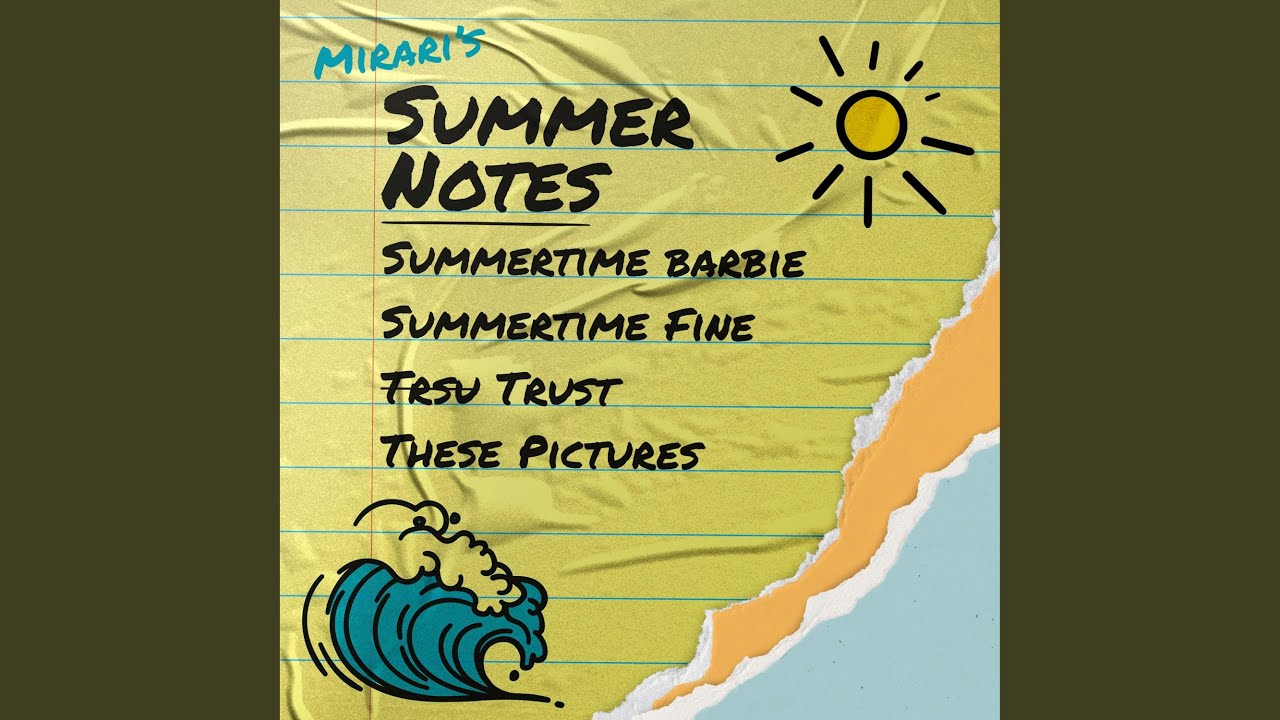 Mirari's
Summer
Notes
Summertime barbie
Summertime Fine
Trsu Trust
These Pictures